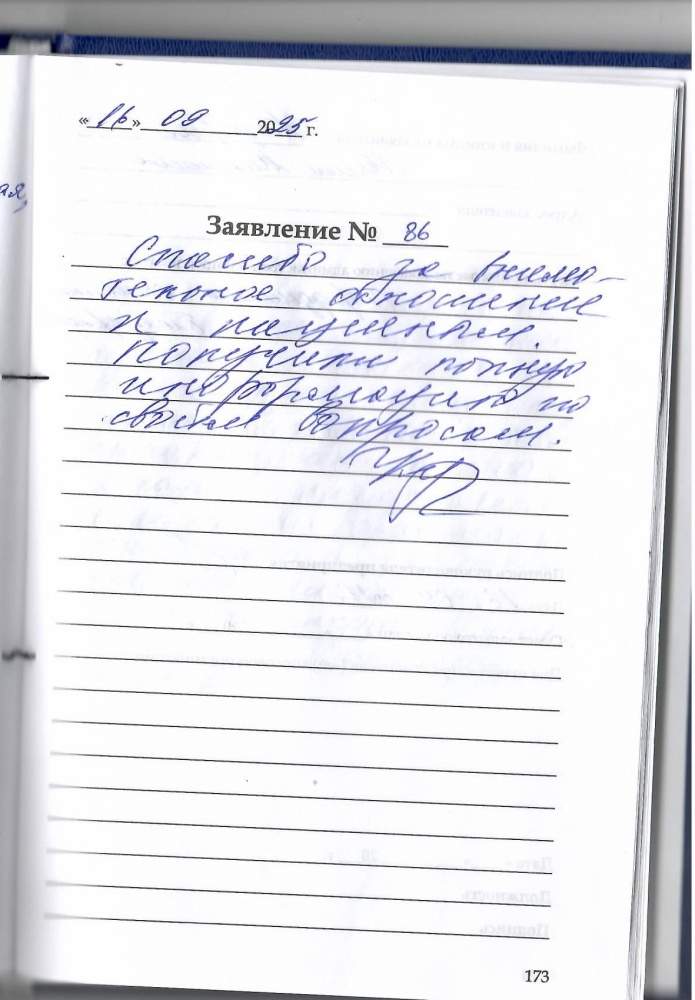 «16» 09 2025 г.
ая,
Заявление № 86
Спасибо за внима-
тельное отношение
к пациентам.
Получили полную
информацию по
своим вопросам.
173